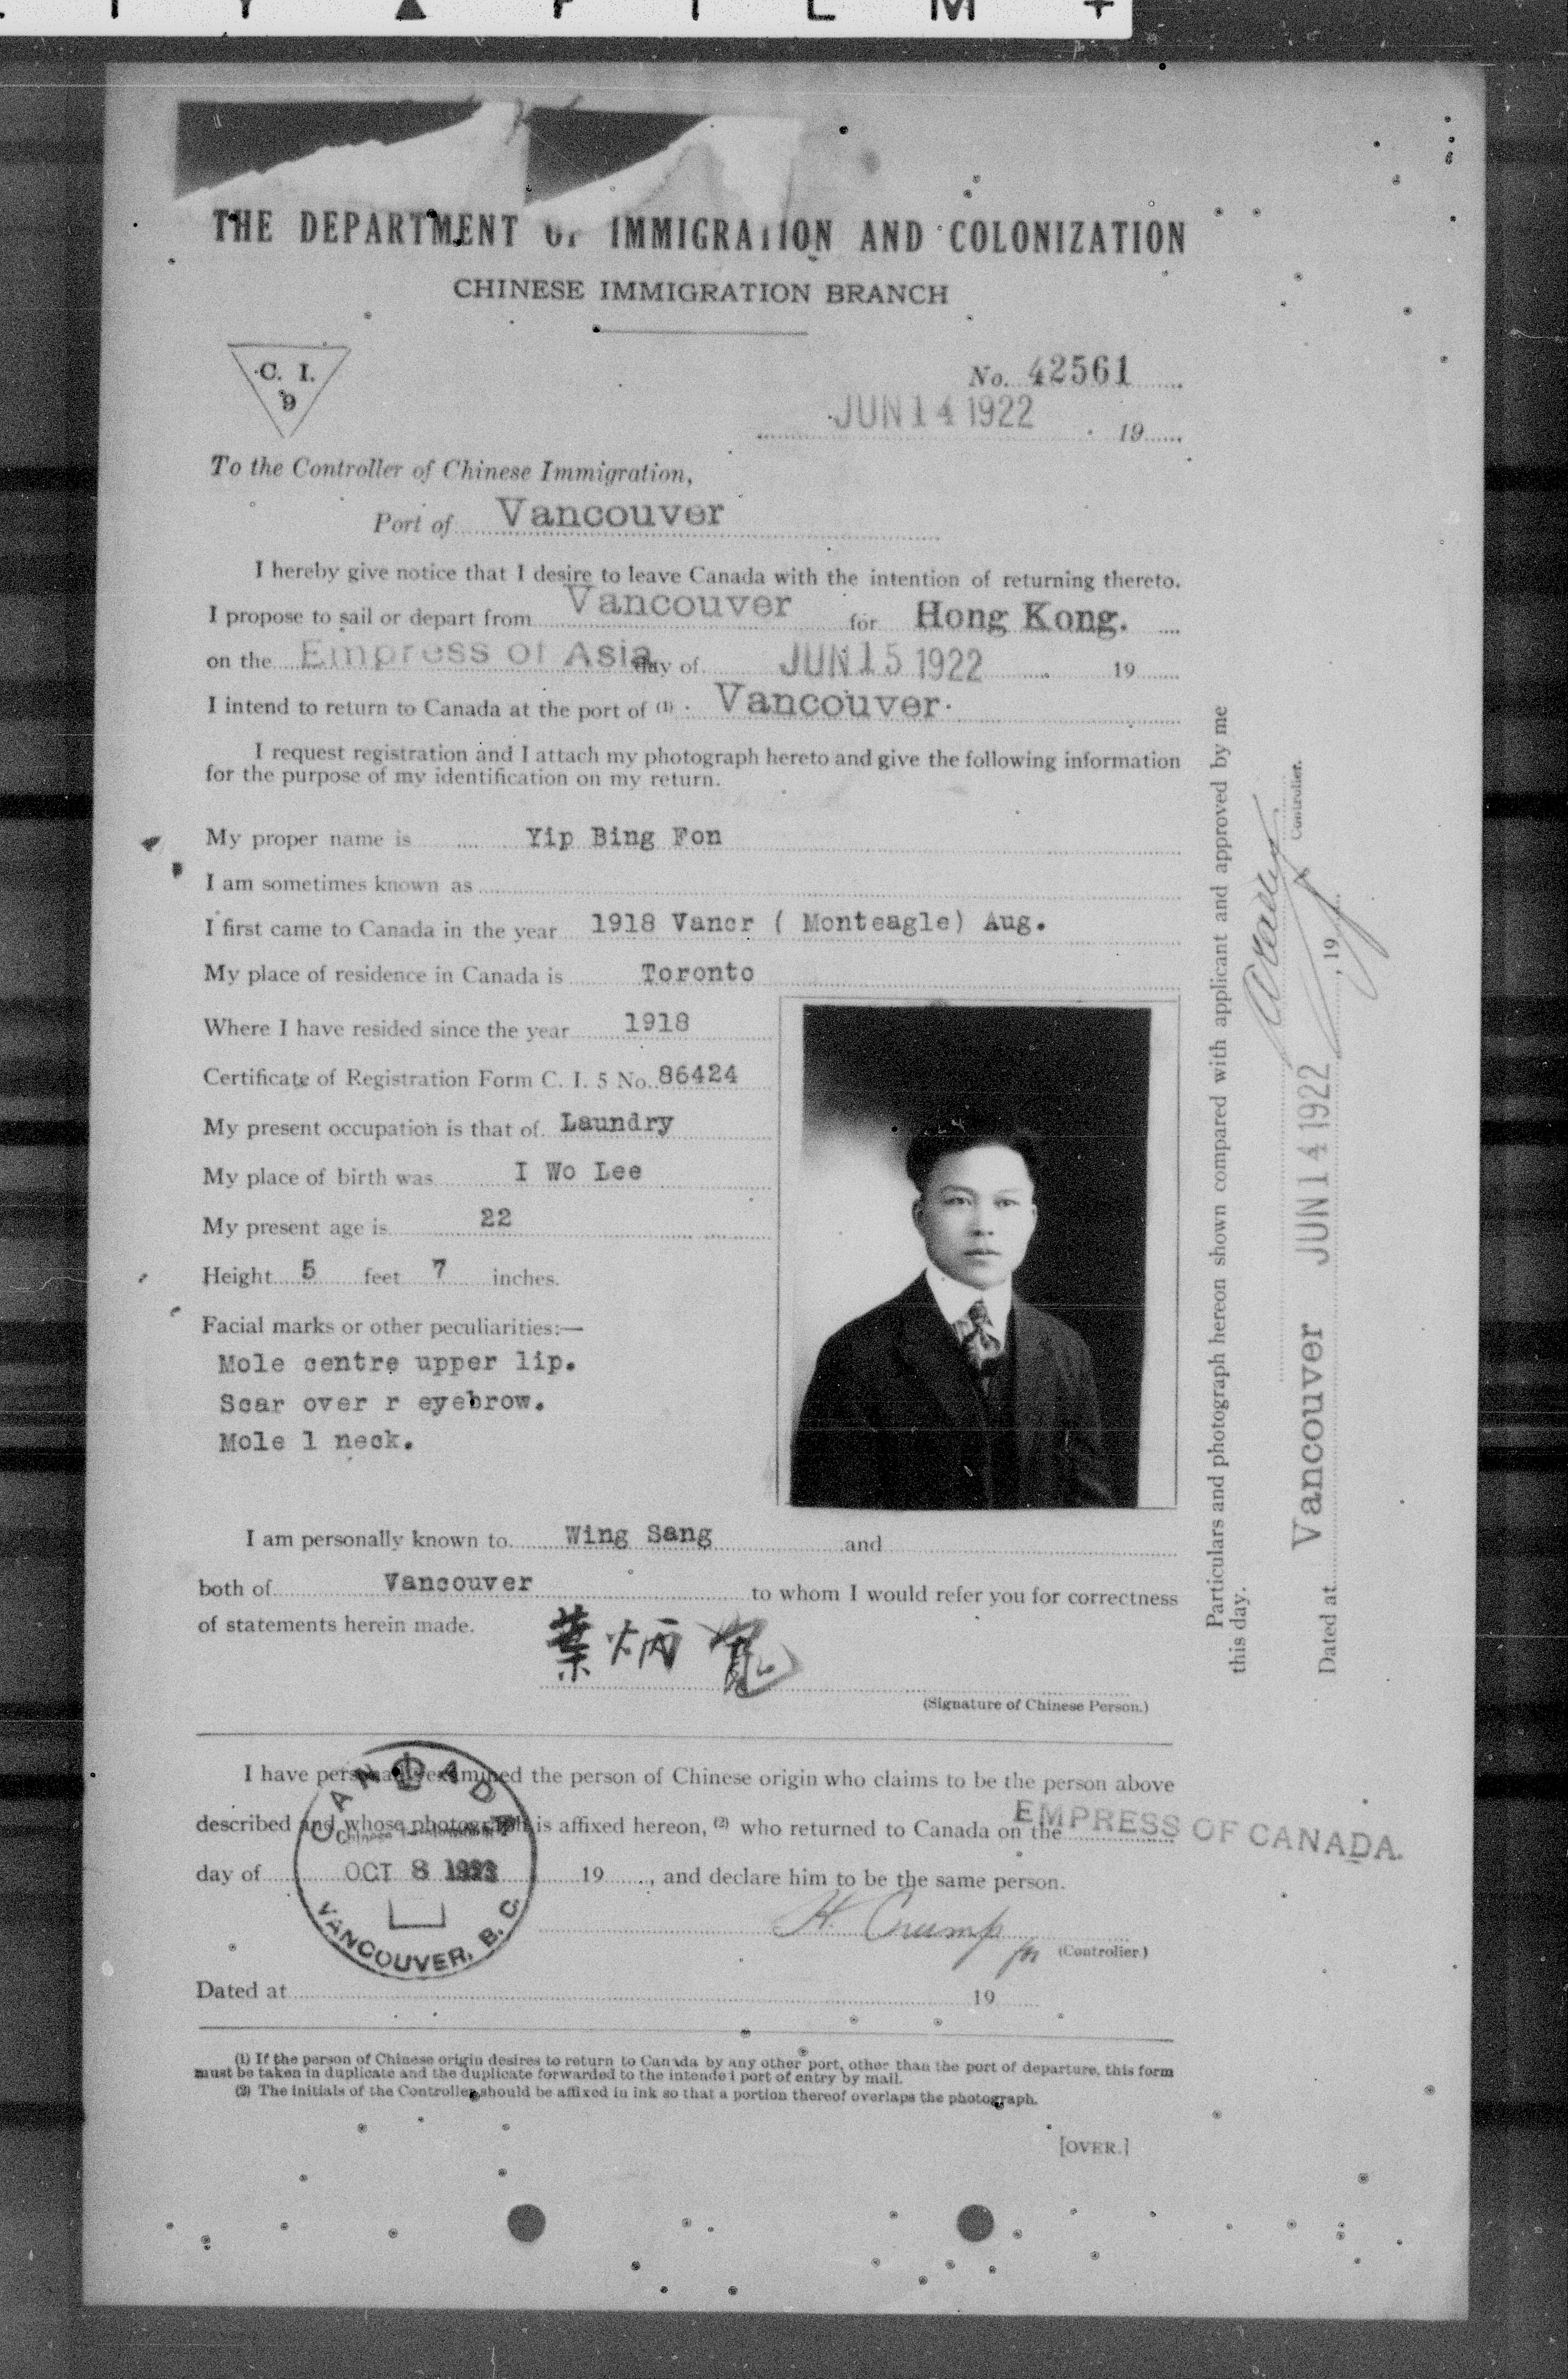 THE DEPARTMENT OF IMMIGRATION AND COLONIZATION
CHINESE IMMIGRATION BRANCH
C. I.
9
No. 42561
JUN 14 1922 19
To the Controller of Chinese Immigration,
Port of Vancouver
I hereby give notice that I desire to leave Canada with the intention of returning thereto.
I propose to sail or depart from Vancouver for Hong Kong.
on the Empress of Asia day of JUN 15 1922 19
I intend to return to Canada at the port of (1) Vancouver.
I request registration and I attach my photograph hereto and give the following information
for the purpose of my identification on my return.
My proper name is Yip Bing Fon
I am sometimes known as
I first came to Canada in the year 1918 Vancr ( Monteagle) Aug.
My place of residence in Canada is Toronto
Where I have resided since the year 1918
Certificate of Registration Form C. I. 5 No. 86424
My present occupation is that of Laundry
My place of birth was I Wo Lee
My present age is 22
Height 5 feet 7 inches.
Facial marks or other peculiarities:—
Mole centre upper lip.
Scar over r eyebrow.
Mole l neck.
I am personally known to Wing Sang and
both of Vancouver to whom I would refer you for correctness
of statements herein made.
葉炳
(Signature of Chinese Person.)
I have personally examined the person of Chinese origin who claims to be the person above
described and whose photograph is affixed hereon, (2) who returned to Canada on the EMPRESS OF CANADA.
day of 19 , and declare him to be the same person.
CANADA
Chinese
OCT 8 1923
VANCOUVER, B. C.
H. Crump
(Controller)
Dated at 19
(1) If the person of Chinese origin desires to return to Canada by any other port, other than the port of departure, this form
must be taken in duplicate and the duplicate forwarded to the intended port of entry by mail.
(2) The initials of the Controller should be affixed in ink so that a portion thereof overlaps the photograph.
[OVER.]
Particulars and photograph hereon shown compared with applicant and approved by me
this day.
Controller.
Dated at Vancouver JUN 14 1922 , 19